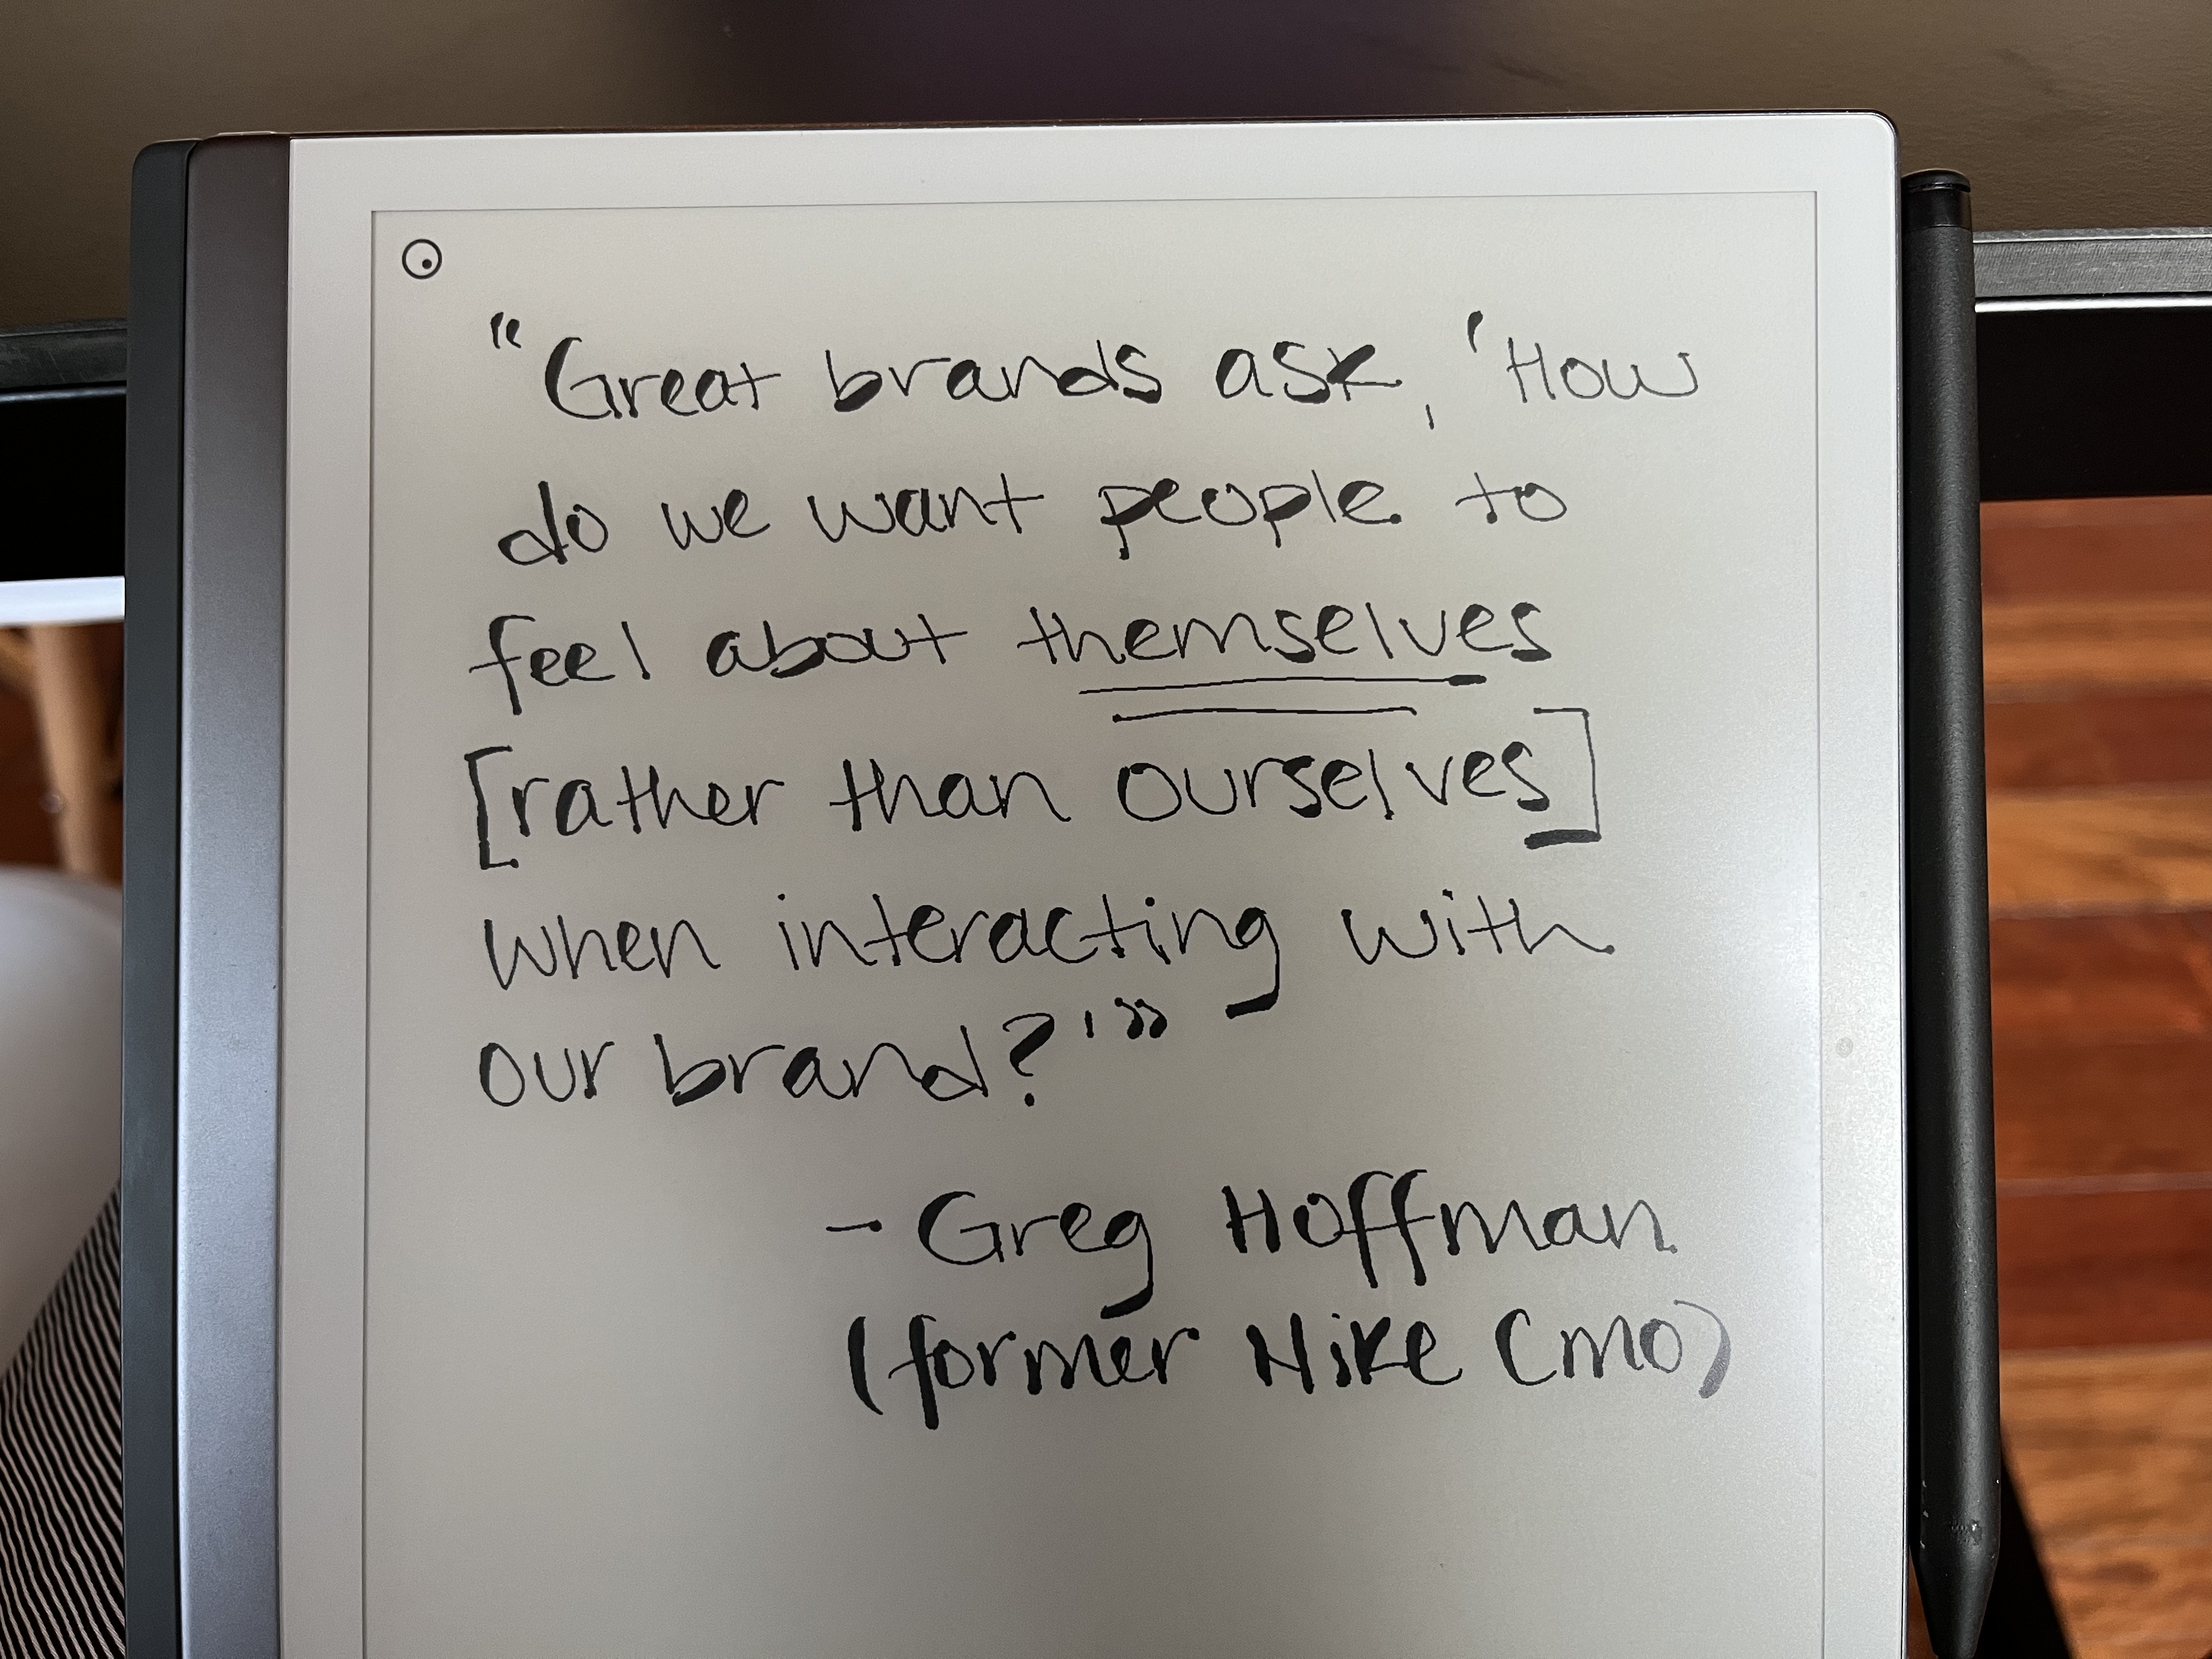 "Great brands ask, 'How
do we want people to
feel about themselves
[rather than ourselves]
when interacting with
our brand?'"
- Greg Hoffman
(former Nike CMO)